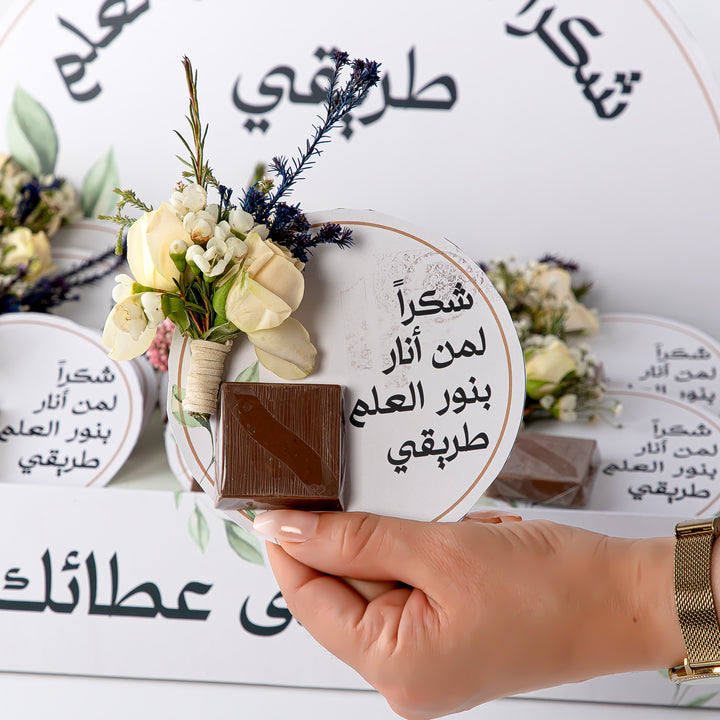 شكراً
العلم
طريقي
شكراً
لمن أنار
بنور العلم
طريقي
شكراً
لمن أنار
بنور العلم
طريقي
شكراً
لمن أنار
شكراً
لمن أنار
بنور العلم
طريقي
عطائك